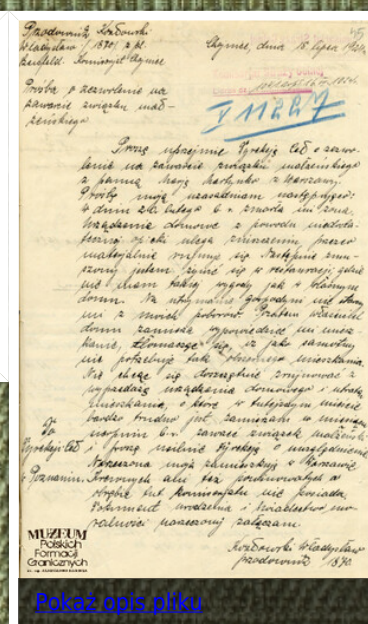 Przodownik Kozłowski
Władysław /1890/ z kl.
Komisarjat Chojnice
Chojnice, dnia 15 lipca
Prośba o zezwolenie na
zawarcie związku mał-
żeńskiego
V 11227
Proszę uprzejmie Dyrekcję Ceł o zezwo-
lenie na zawarcie związku małżeńskiego
z panną Marją z Warszawy.
Prośbę moją uzasadniam następująco:
W dniu lutego b.r. zmarła mi żona.
Urządzenie domowe z powodu niedosta-
tecznej opieki ulega zniszczeniu, przez co
materjalnie się. Następnie zmu-
szony jestem żywić się w restauracji, gdzie
nie mam takiej wygody jak w własnym
domu. Na utrzymanie gospodyni nie
mi z moich poborów. Pozatem właściciel
domu zamierza wypowiedzieć mi miesz-
kanie, tłomacząc się, iż jako samotny
nie potrzebuję tak obszernego mieszkania.
Nie chcąc się doszczętnie zrujnować z
wyprzedażą urządzenia domowego i utratą
mieszkania, o które w tutejszym mieście
bardzo trudno jest, zamierzam w miesiącu
sierpniu b.r. zawrzeć związek małżeński
i proszę usilnie Dyrekcję o uwzględnienie.
Do
Dyrekcji Ceł
w Poznaniu.
Narzeczona moja zamieszkuje w Warszawie.
Krewnych ani też powinowatych w
obrębie tut. komisarjatu nie posiada.
Dokument urodzenia i świadectwo mo-
ralności narzeczonej załączam.
Kozłowski Władysław
przodownik /1890.
MUZEUM
Polskich
Formacji
Granicznych
Pokaż opis pliku